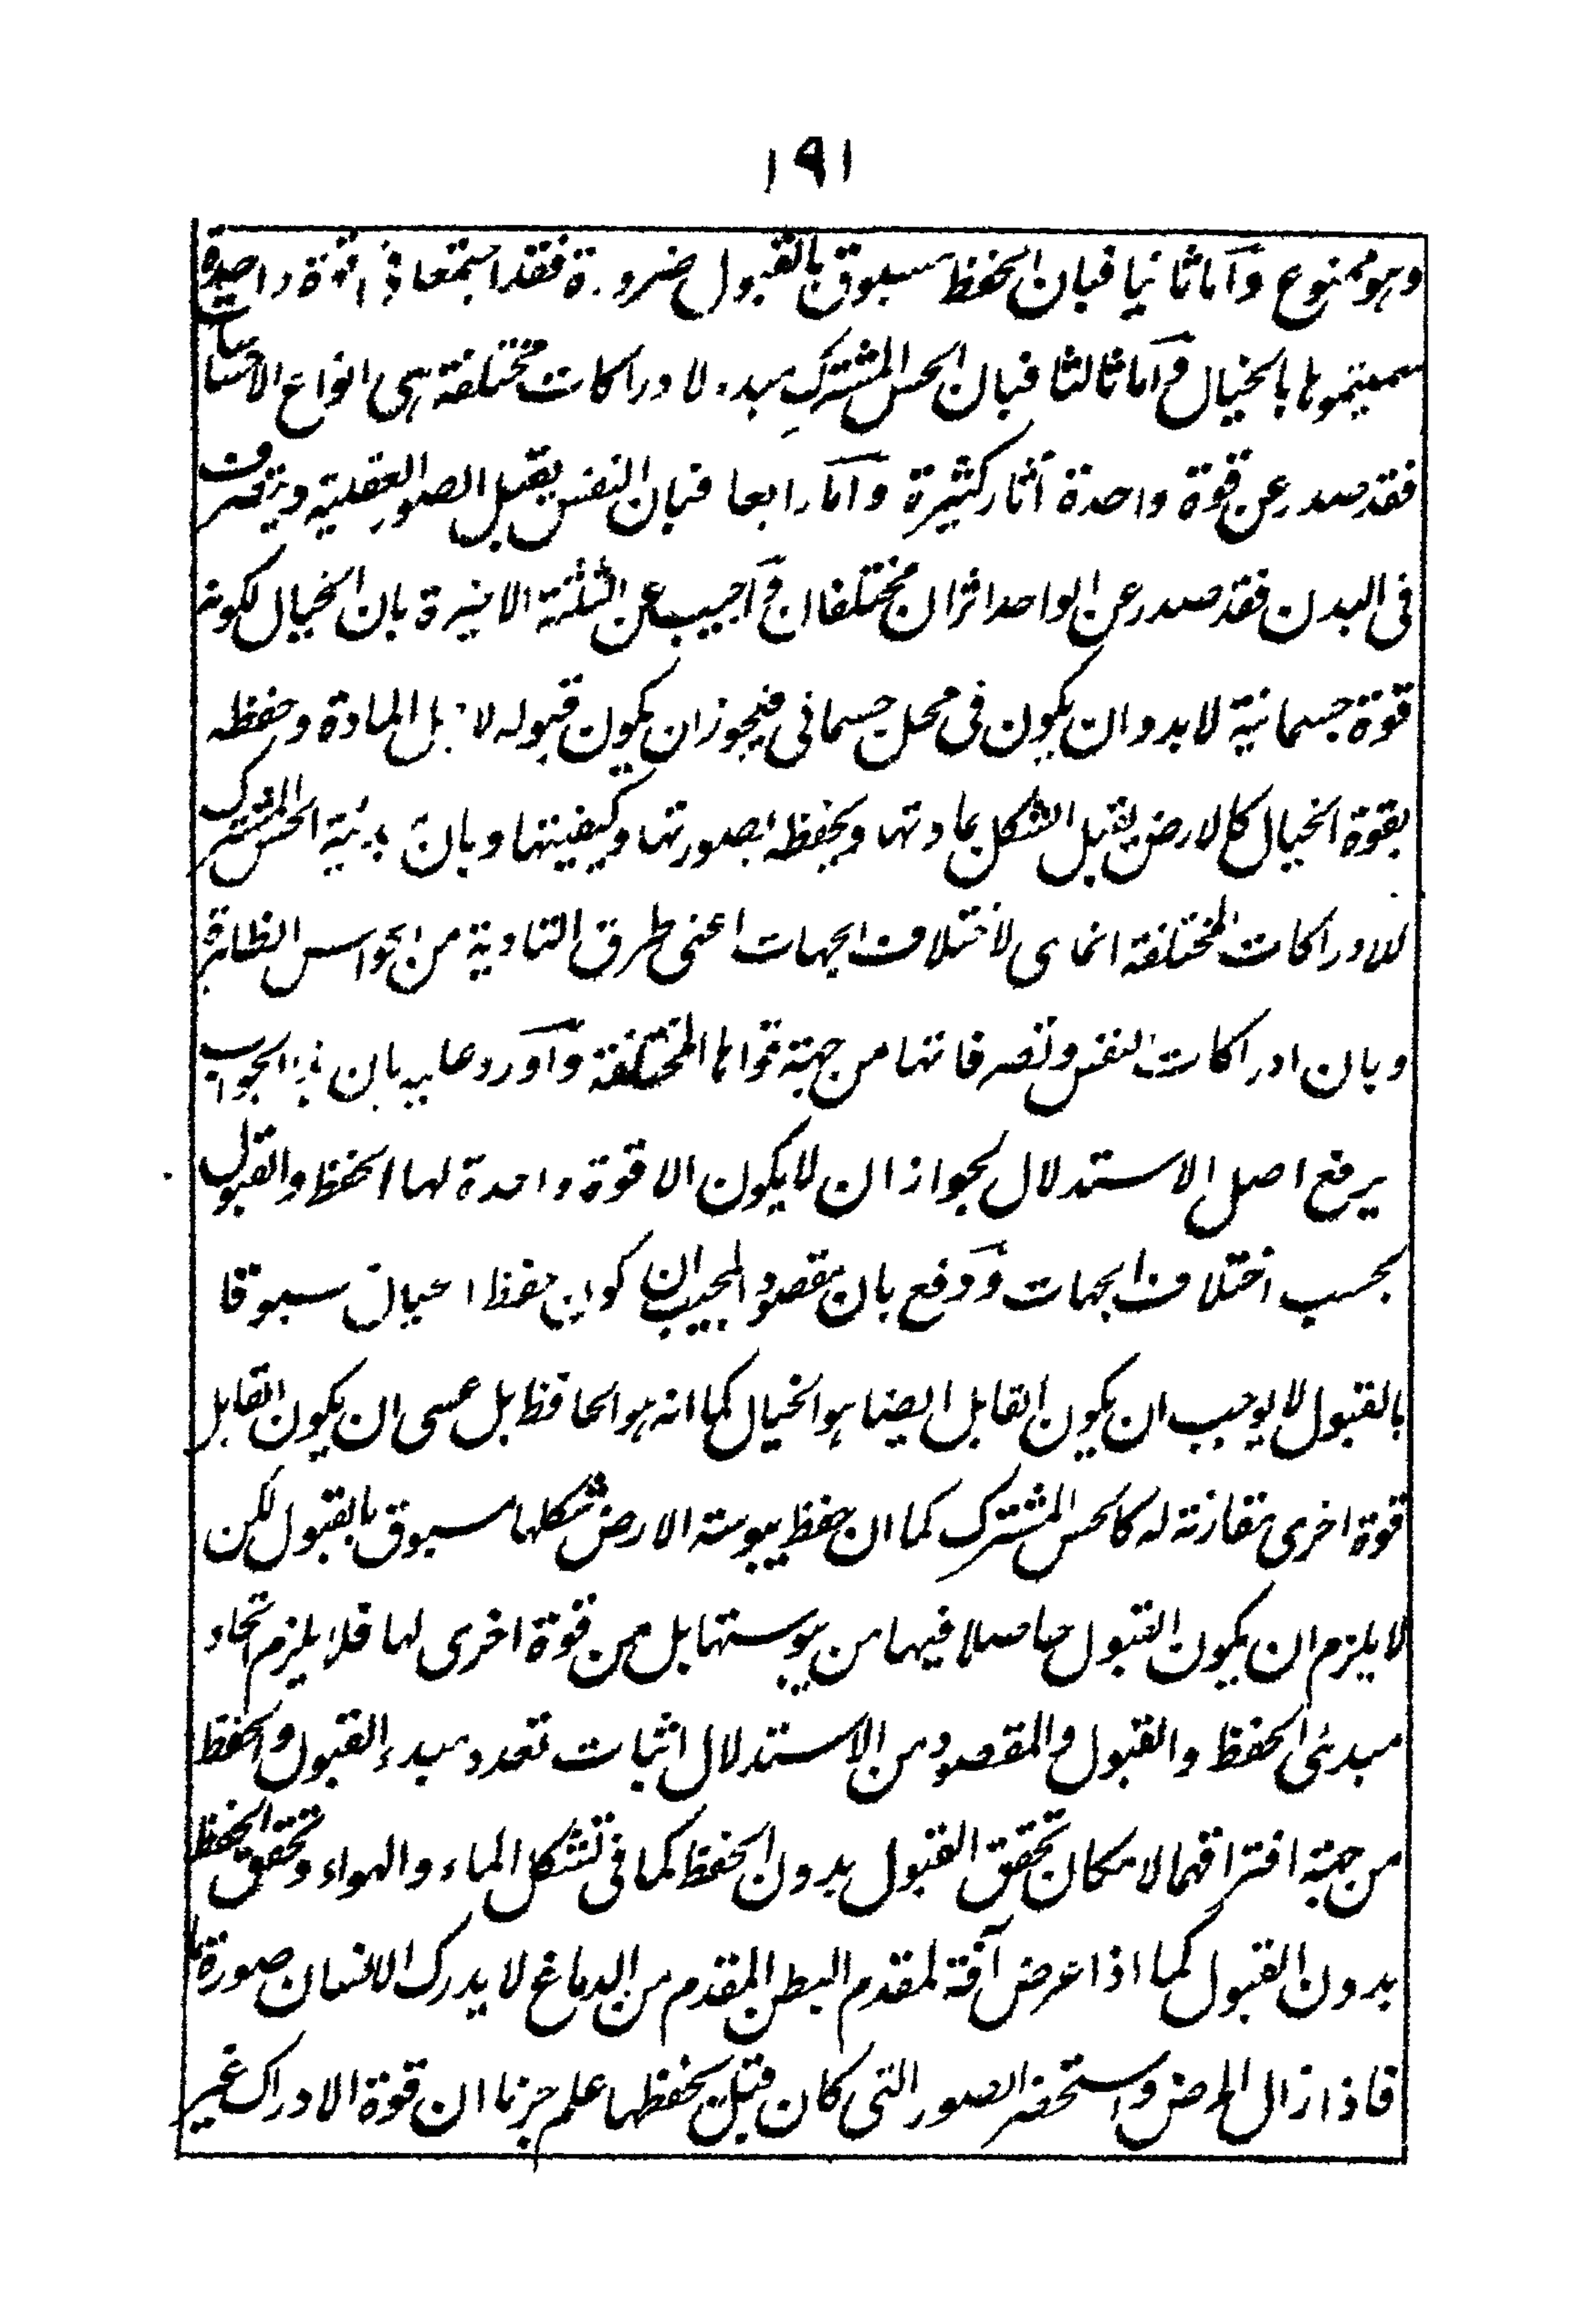 ١٩١
وهو ممنوع وآما ثانيا فبان الحفظ مسبوق بالقبول ضرورة فقد اجتمعا فى قوة واحدة
سميتموها بالخيال وآما ثالثا فبان الحس المشترك مبدء لادراكات مختلفة هى انواع الاحساسات
فقد صدر عن قوة واحدة آثار كثيرة وآما رابعا فبان النفس يقبل الصور العقلية ويتصرف
فى البدن فقد صدر عن الواحد اثران مختلفان وآجيب عن الثلثة الاخيرة بان الخيال لكونه
قوة جسمانية لابد وان يكون فى محل جسمانى فيجوز ان يكون قبوله لاجل المادة وحفظه
بقوة الخيال كالارض يقبل الشكل بمادتها ويحفظه بصورتها وكيفيتها وبان مبدئية الحس المشترك
للادراكات المختلفة انما هى لاختلاف الجهات اعنى طرق التادية من الحواس الظاهرة
وبان ادراكات النفس وتصرفاتها من جهة قواها المختلفة وآورد عليه بان هذا الجواب
يرفع اصل الاستدلال لجواز ان لا يكون الا قوة واحدة لها الحفظ والقبول
بحسب اختلاف الجهات ودفع بان مقصود المجيب ان كون حفظ الخيال مسبوقا
بالقبول لا يوجب ان يكون القابل ايضا هو الخيال كما انه هو الحافظ بل عسى ان يكون القابل
قوة اخرى مقارنة له كالحس المشترك كما ان حفظ يبوسة الارض شكلها مسبوق بالقبول لكن
لا يلزم ان يكون القبول حاصلا فيها من يبوستها بل من قوة اخرى لها فلا يلزم اتحاد
مبدئى الحفظ والقبول والمقصود من الاستدلال اثبات تعدد مبدء القبول والحفظ
من جهة افتراقهما لامكان تحقق القبول بدون الحفظ كما فى تشكل الماء والهواء وتحقق الحفظ
بدون القبول كما اذا عرض آفة لمقدم البطن المقدم من الدماغ لا يدرك الانسان صورة ما
فاذا زال المرض واستحضر الصور التى كان قبل يحفظها علم جزما ان قوة الادراك غير